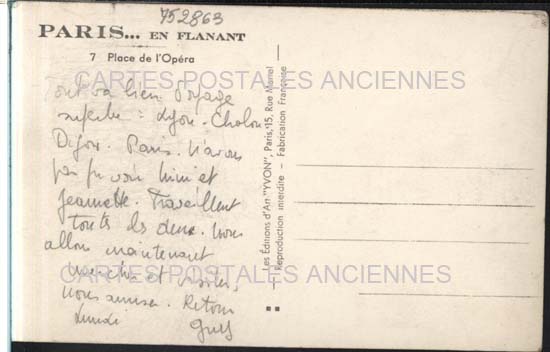 752863
PARIS... EN FLANANT
7 Place de l'Opéra
CARTES POSTALES ANCIENNES
Tout va bien. Voyage
superbe : Lyon. Chalon
Dijon. Paris. N'avons
pas pu voir Mimi et
Jeannette. Travaillent
toutes les deux. Nous
allons maintenant
marcher et visiter,
nous amuser. Retour
Lundi
CARTES POSTALES ANCIENNES
Les Editions d'Art "YVON", Paris, 15, Rue Martel
Reproduction interdite - Fabrication Française